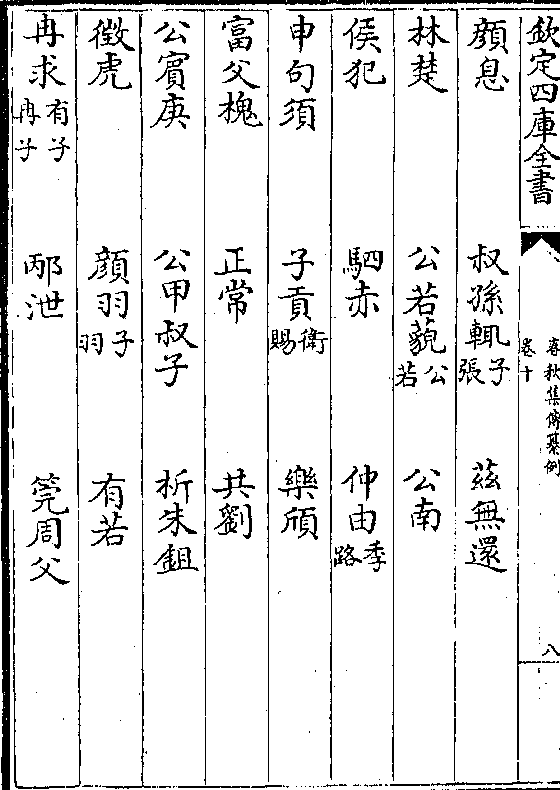 欽定四庫全書
春秋集傳纂例
卷十
八
顔息 叔孫輒子張 茲無還
林楚 公若藐公若 公南
侯犯 駟赤 仲由季路
申句須 子貢衛賜 樂頎
富父槐 正常 共劉
公賓庚 公甲叔子 析朱鉏
微虎 顔羽子羽 有若
冉求有子冉子 邴泄 筦周父